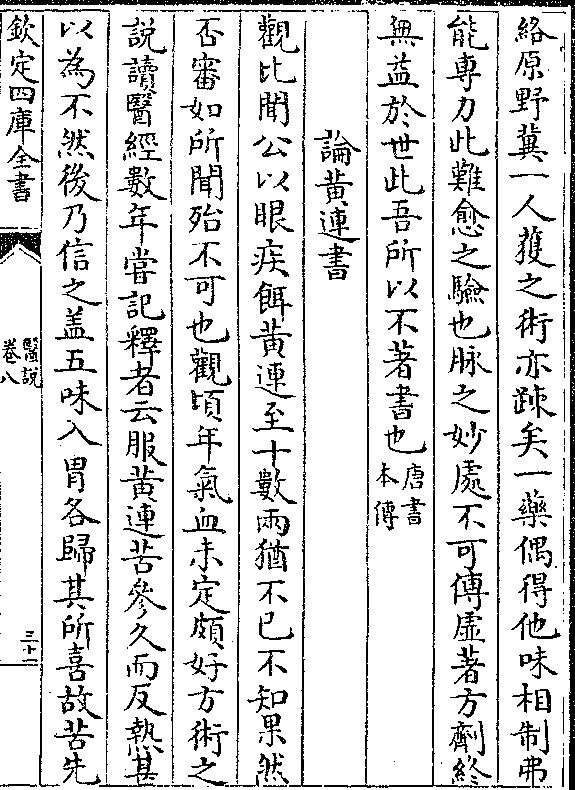 絡原野冀一人䕶之術亦踈矣一藥偶得他味相制弗
能專力此難愈之驗也脉之妙處不可傳虚著方劑終
無益於世此吾所以不著書也唐書本傳
論黄連書
觀比聞公以眼疾餌黄連至十數兩猶不已不知果然
否審如所聞殆不可也觀頃年氣血未定頗好方術之
說讀醫經數年嘗記釋者云服黄連苦參久而反熱甚
以為不然後乃信之盖五味入胃各歸其所喜故苦先
欽定四庫全書
醫說
卷八
三十一